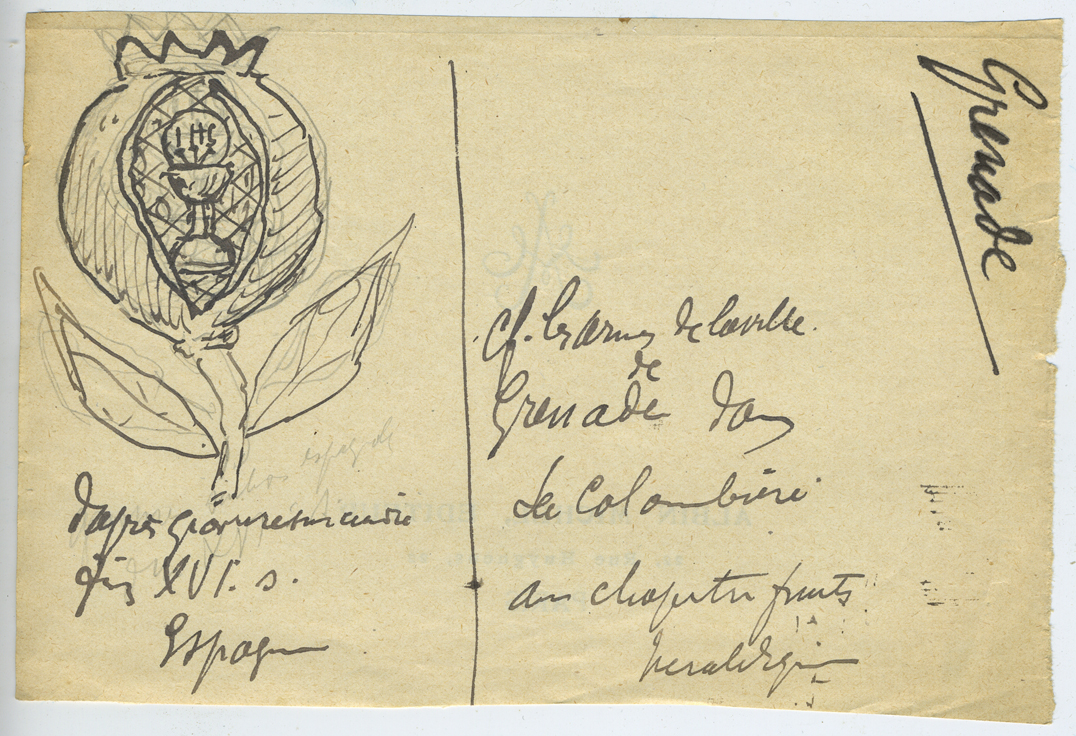 Grenade
IHS
d'après gravure sur cuivre
fin XVI. s.
Espagne
cf. les armes de la ville
de
Grenade dans
La Colombière
au chapitre fruits
heraldique